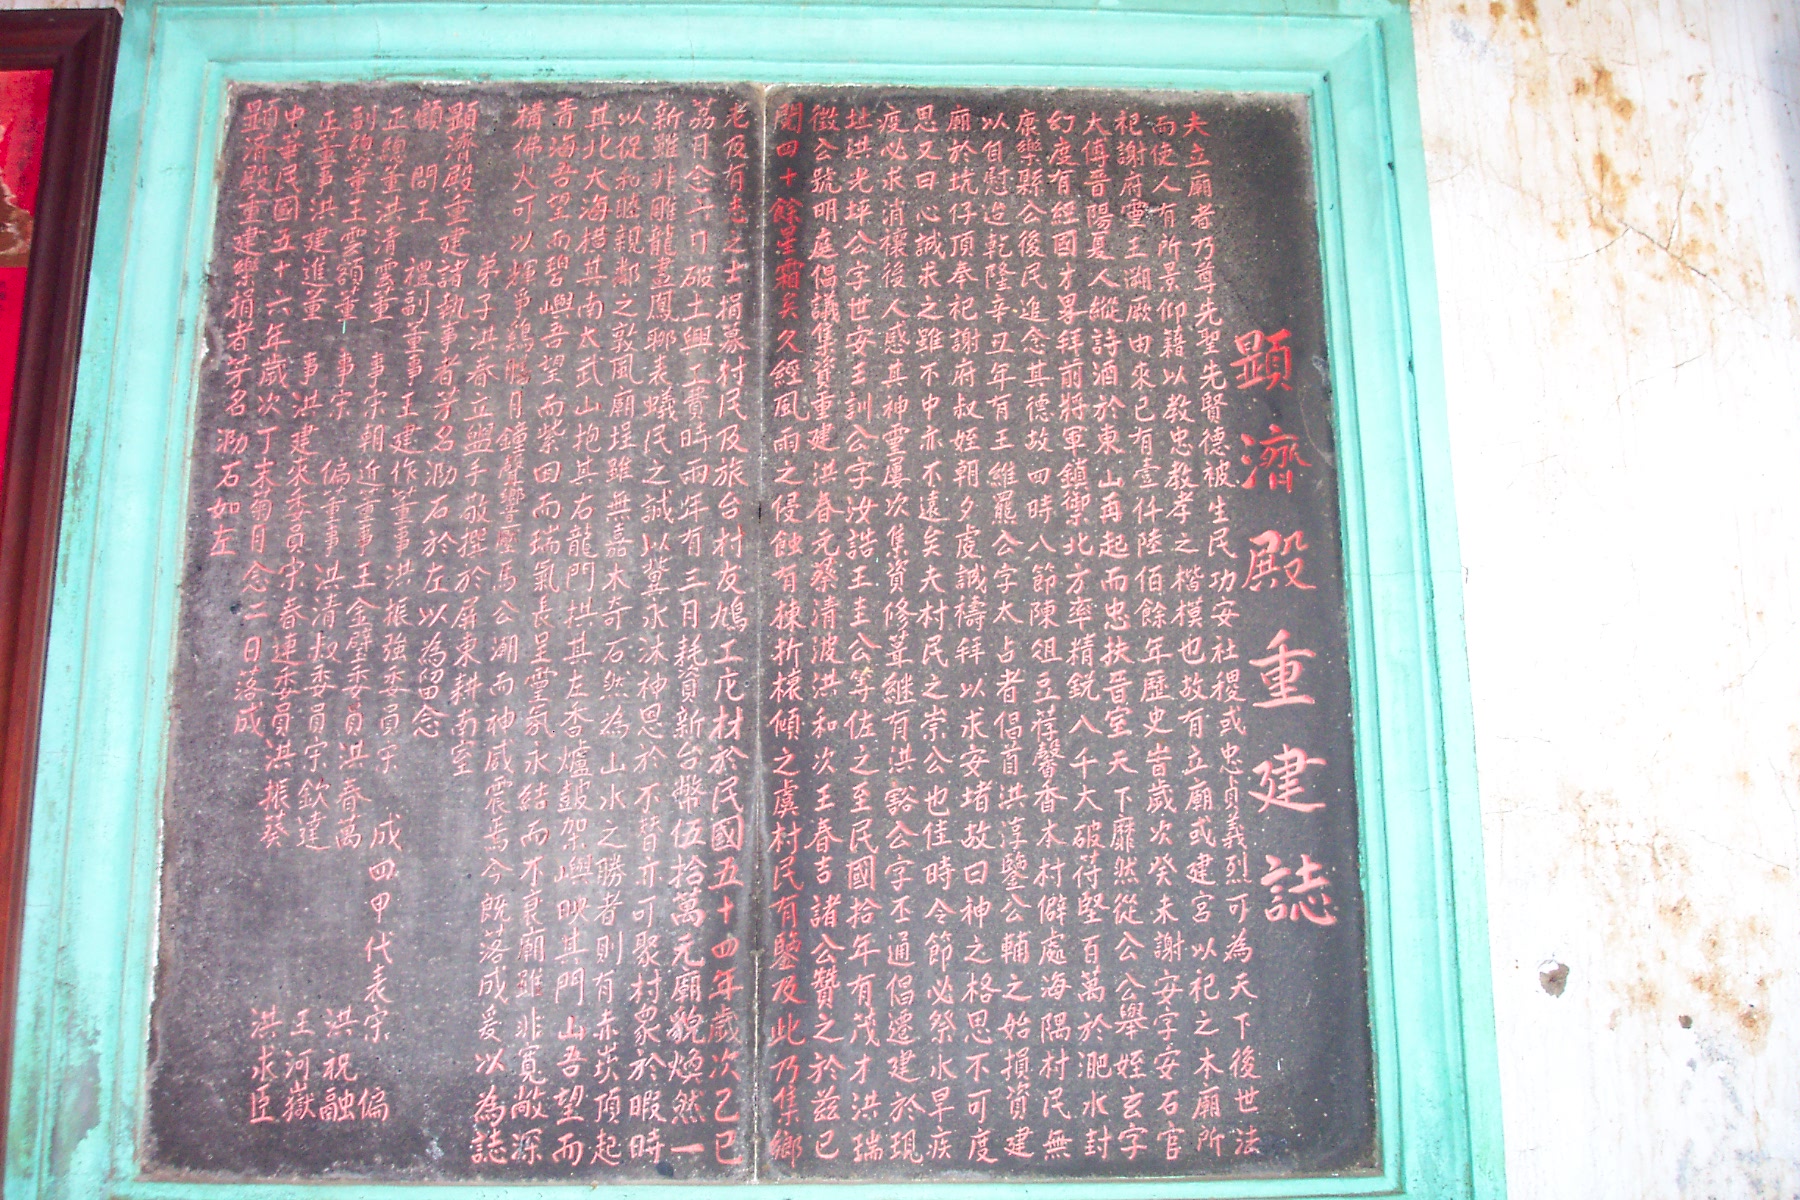 顯濟殿重建誌
夫立廟者乃尊先聖先賢德被生民功安社稷或忠貞義烈可為天下後世法
而使人有所景仰藉以教忠教孝之楷模也故有立廟或建宮以祀之本廟所
祀謝府靈王溯厥由來已有壹仟陸佰餘年歷史旹歲次癸未謝安字安石官
大傅晉陽夏人縱詩酒於東山再起而忠扶晉室天下靡然從公公舉姪玄字
幻度有經國才畧拜前將軍鎮禦北方率精銳八千大破苻堅百萬於淝水封
康樂縣公後民進念其德故四時八節陳俎豆荐馨香本村僻處海隅村民無
以自慰迨乾隆辛丑年有王維羆公字太占者倡首洪淳鑒公輔之始捐資建
廟於坑仔頂奉祀謝府叔姪朝夕虔誠禱拜以求安堵故曰神之格思不可度
思又曰心誠求之雖不中亦不遠矣夫村民之崇公也佳時令節必祭水旱疾
疫必求消禳後人感其神靈屢次集資修葺継有洪谿公字丕通倡遷建於現
址洪光坪公字世安王訓公字汝誥王圭公等佐之至民國拾年有茂才洪瑞
徵公號明庭倡議集資重建洪春元蔡清波洪和次王春吉諸公贊之於茲已
閱四十餘星霜矣久經風雨之侵蝕有棟折榱傾之虞村民有鑒及此乃集鄉
老及有志之士捐募村民及旅台村友鳩工庀材於民國五十四年歲次乙巳
荔月念六日破土興工費時兩年有三月耗資新台幣伍拾萬元廟貌煥然一
新雖非雕龍畫鳳聊表蟻民之誠以冀永沐神恩於不替亦可聚村眾於暇時
以促和睦親鄰之敦風廟埕雖無嘉木奇石然為山水之勝者則有赤崁頂起
其北大海橫其南太武山抱其右龍門拱其左香爐鼓架嶼映其門山吾望而
青海吾望而碧嶼吾望而紫回而瑞氣長呈雪氛永結而不衰廟雖非寬敞深
構佛火可以輝爭鷄鵬月鐘聲響壓馬公潮而神威震焉今既落成爰以為誌
弟子洪春立盥手敬撰於屏東耕南室
顯濟殿重建諸執事者芳名泐石於左以為留念
顧問王禮副董事王建作董事洪振強委員宋
正總董洪清雲董事宋朝近董事王金壁委員洪春萬
副總董王雲額董事宗偏董事洪清叔委員宗欽達
正董事洪建進董事洪建來委員宋春連委員洪振葵
成四甲代表宋偏
洪祝融
王河嶽
洪求臣
中華民國五十六年歲次丁未菊月念二日落成
顯濟殿重建樂捐者芳名泐石如左